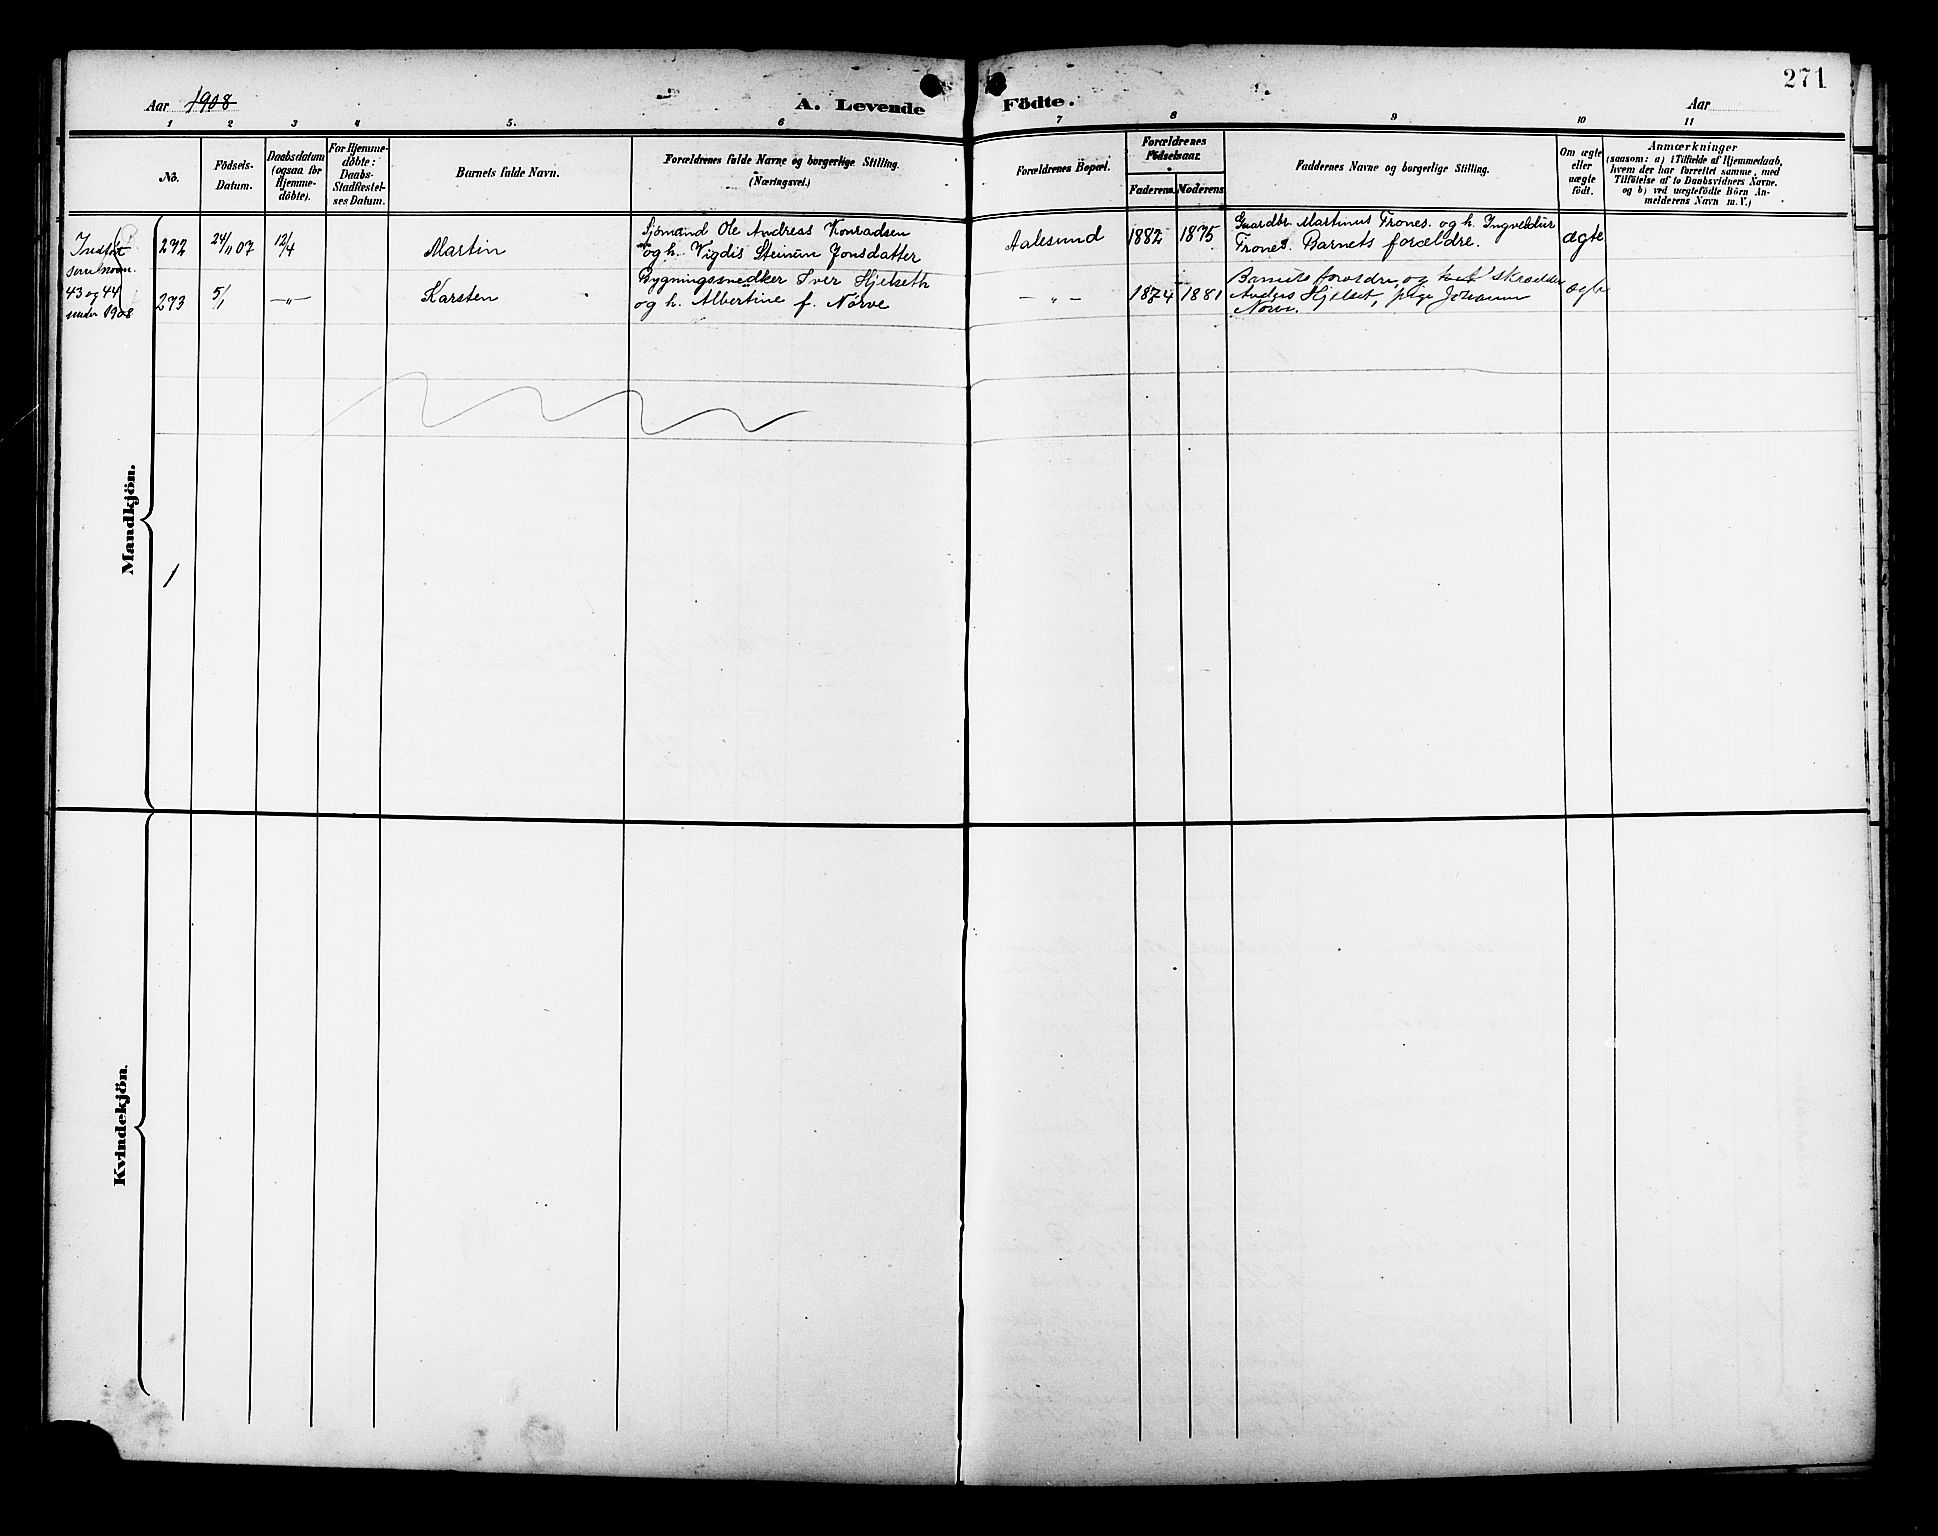 271
Aar 1908
A. Levende Födte.
Aar
1 2 3 4 5. 6 7 8 9 10 11
No.
Födsels-
Datum.
Daabsdatum
(ogsaa for
Hjemme-
döbte).
For Hjemme-
döbte:
Daabs-
Stadfæstel-
ses Datum.
Barnets fulde Navn.
Forældrenes fulde Navne og borgerlige Stilling.
(Næringsvei.)
Forældrenes Bopæl.
Forældrenes
Födselsaar.
Faderens.
Moderens
Faddernes Navne og borgerlige Stilling.
Om ægte
eller
uægte
födt.
Anmærkninger
(saasom: a) i Tilfælde af Hjemmedaab,
hvem der har forrettet samme, med
Tilföielse af to Daabsvidners Navne.
og b) ved uægtefödte Börn An-
melderens Navn m. V.)
Indført
som
43 og 44
under 1908
272
24/11 07
12/4
Martin
Sjömand Ole Andreas Konradsen
og h. Vigdis Steinun Jonsdatter
Aalesund
1882
1875
Gaardbr. Martinus Trones. og h. Ingveldur
Trones. Barnets forældre.
ægte
273
5/1
—„—
Karsten
Bygningssnedker Iver Hjelseth
og h. Albertine f. Nörve
— „ —
1874
1881
Barnets forældre, og skrædder
Anders Hjelset, pige Johanna
Nörve.
ægte
Mandkjön.
1
Kvindekjön.